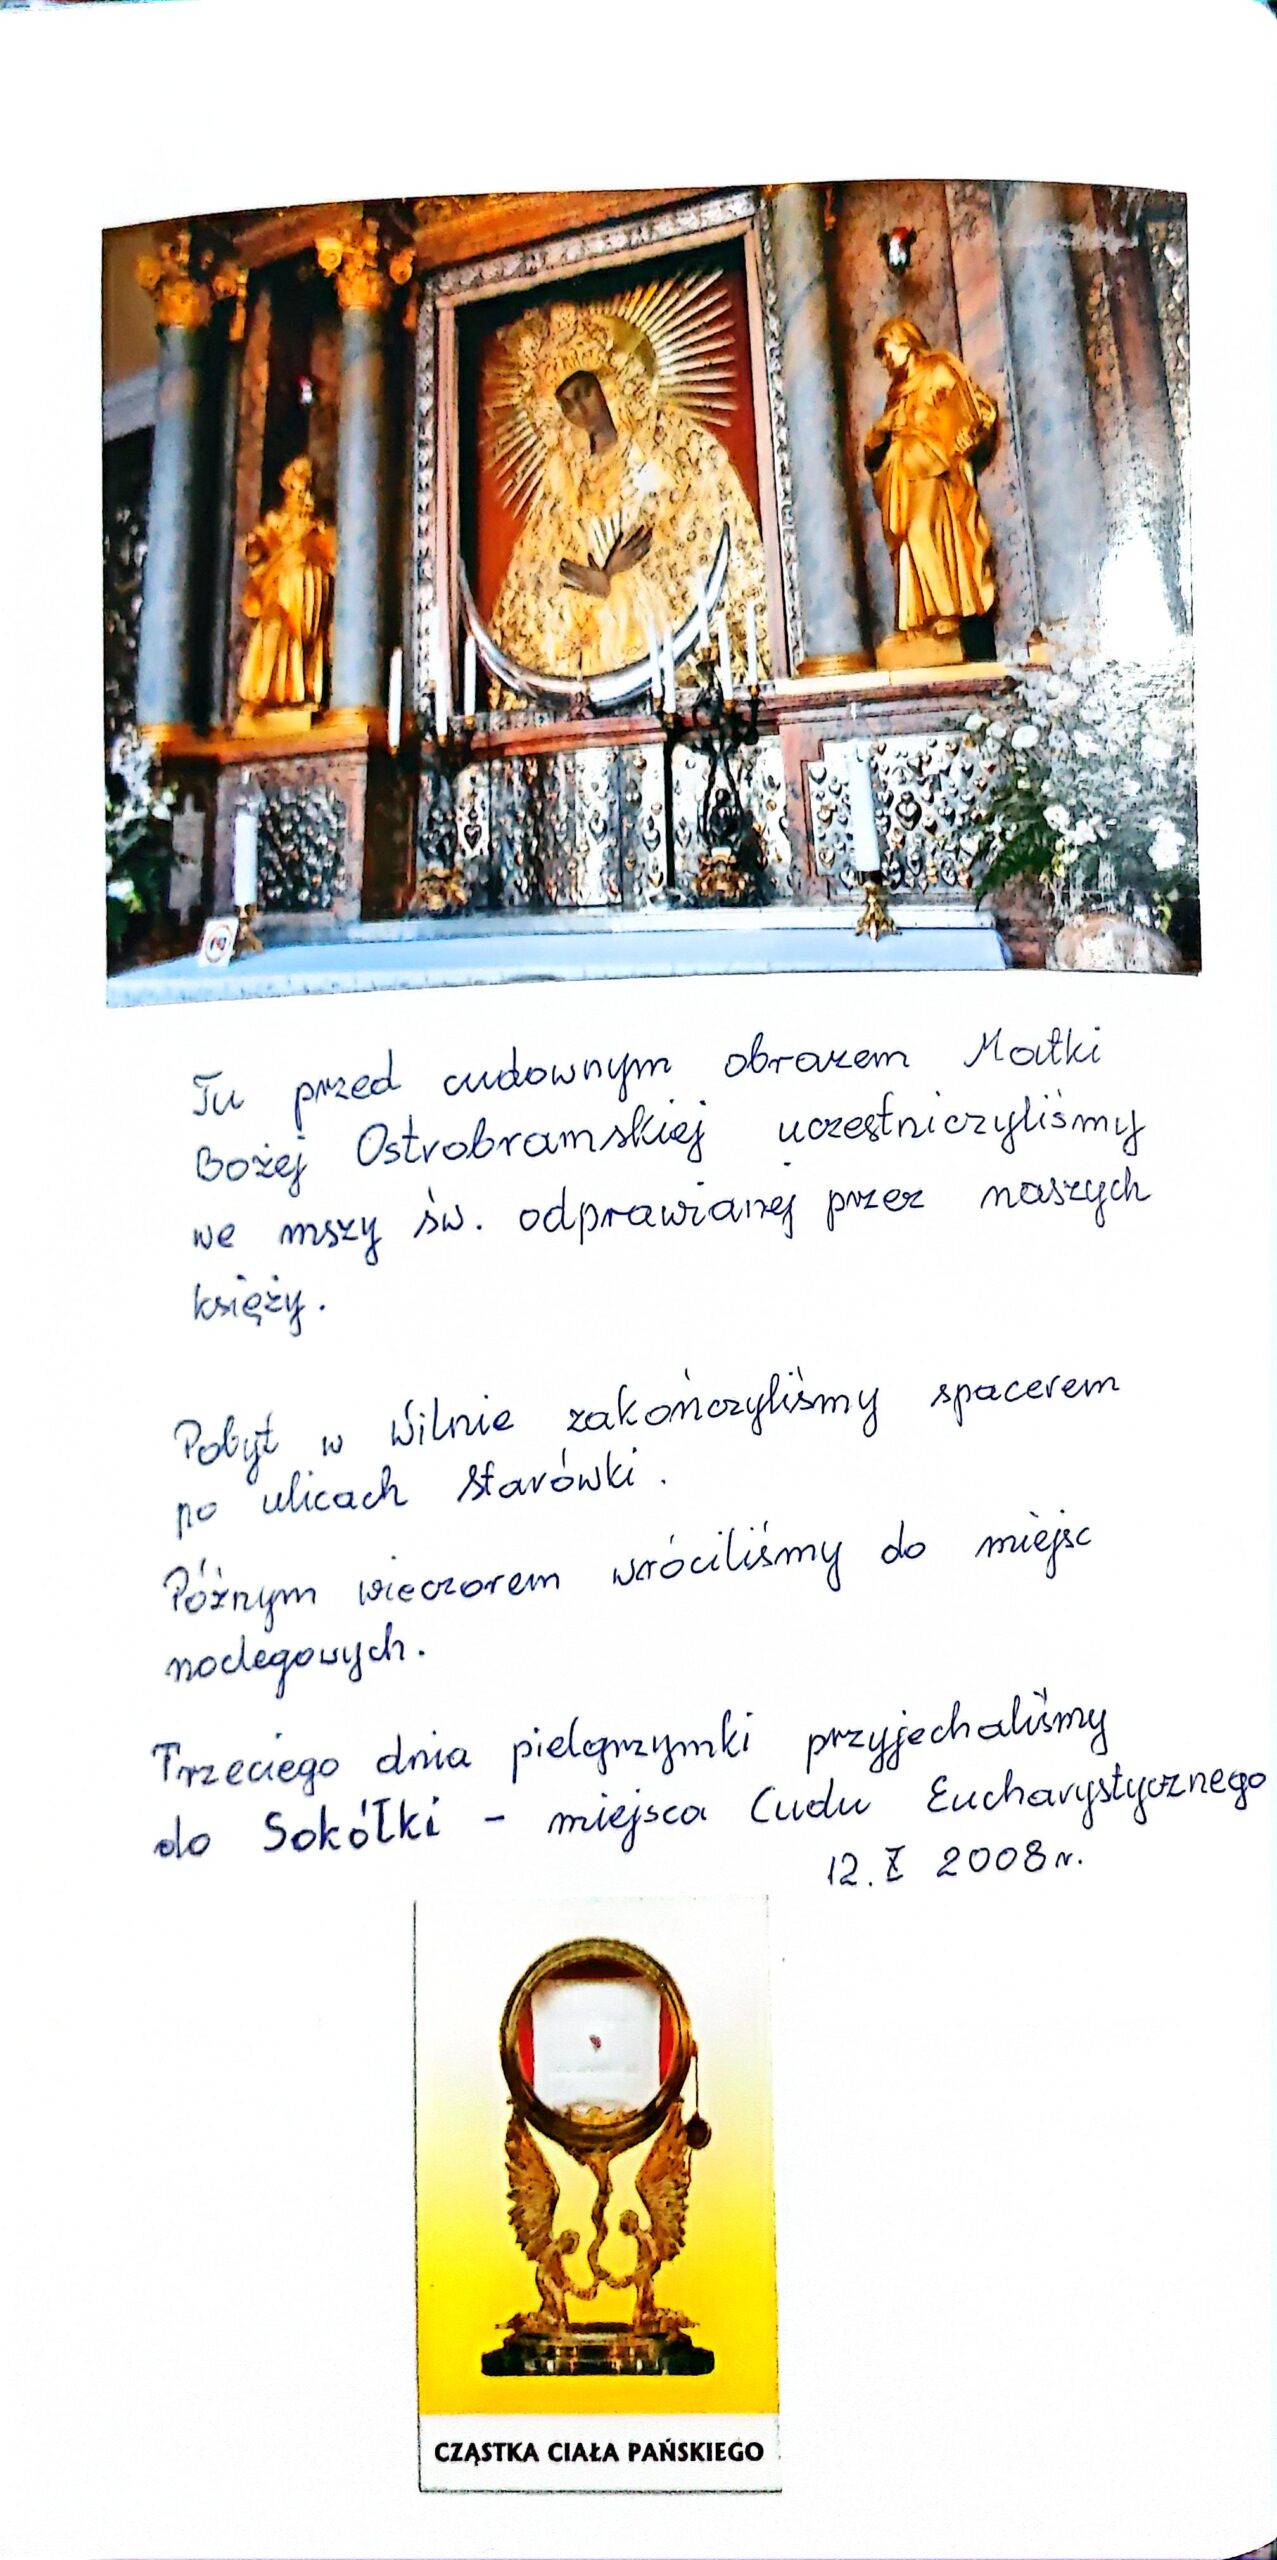 Tu przed cudownym obrazem Matki
Bożej Ostrobramskiej uczestniczyliśmy
we mszy św. odprawianej przez naszych
księży.
Pobyt w Wilnie zakończyliśmy spacerem
po ulicach starówki.
Późnym wieczorem wróciliśmy do miejsc
noclegowych.
Trzeciego dnia pielgrzymki przyjechaliśmy
do Sokółki - miejsca Cudu Eucharystycznego
12. X 2008 r.
CZĄSTKA CIAŁA PAŃSKIEGO